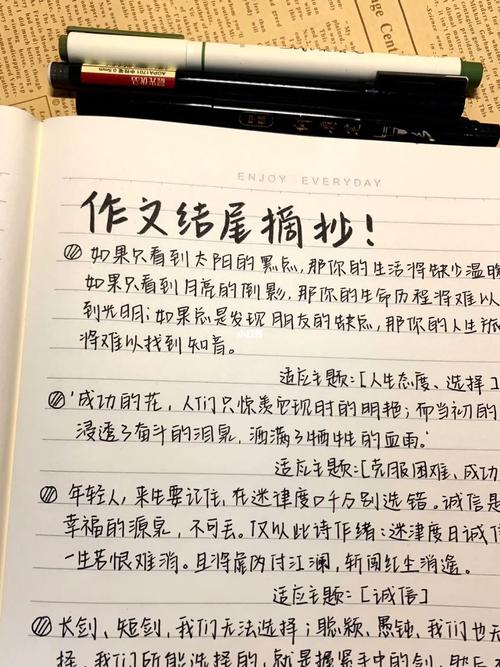 Century
AGPA1701 中性笔 0.5mm
晨光优品
ENJOY EVERYDAY
作文结尾摘抄!
如果只看到太阳的黑点,那你的生活将缺少温暖
如果只看到月亮的倒影,那你的生命历程将难以
到光明;如果总是发现朋友的缺点,那你的人生旅
将难以找到知音。
小红书
适应主题:[人生态度、选择]
'成功的花,人们只惊羡它现时的明艳;而当初的
浸透了奋斗的泪泉,洒满了牺牲的血雨.'
适应主题:[克服困难、成功
年轻人,来生要记住,在迷津度口千万别选错。诚信是
幸福的源泉,不可丢。仅以此诗作绪:迷津度日诚信
一生苦恨难消。且将虚伪付江澜,斩闯红生消途。
适应主题:[诚信]
长剑、短剑,我们无法选择;聪颖、愚钝,我们也无
择,我们所能选择的,就是握紧手中的剑,